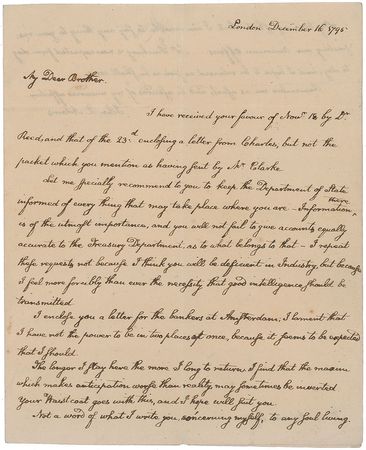 London December 16. 1795
My Dear Brother.
I have received your favour of Novr. 18 by Dr.
Reed, and that of the 23.d enclosing a letter from Charles, but not the
packet which you mention as having sent by Mr. Clarke
Let me specially recommend to you to keep the Department of State
informed of every thing that may take place where you are – Information there
is of the utmost importance, and you will not fail to give accounts equally
accurate to the Treasury Department, as to what belongs to that – I repeat
these requests not because I think you will be deficient in Industry, but because
I feel more forcibly than ever the necessity that good intelligence, should be
transmitted
I enclose you a letter for the bankers at Amsterdam. I lament that
I have not the power to be in two places at once, because it seems to be expected
that I should.
The longer I stay here the more I long to return, I find that the maxim
which makes anticipation worse than reality, may sometimes be inverted
Your Waistcoat goes with this, and I hope will suit you.
Not a word of what I write you, concerning myself, to any soul living.